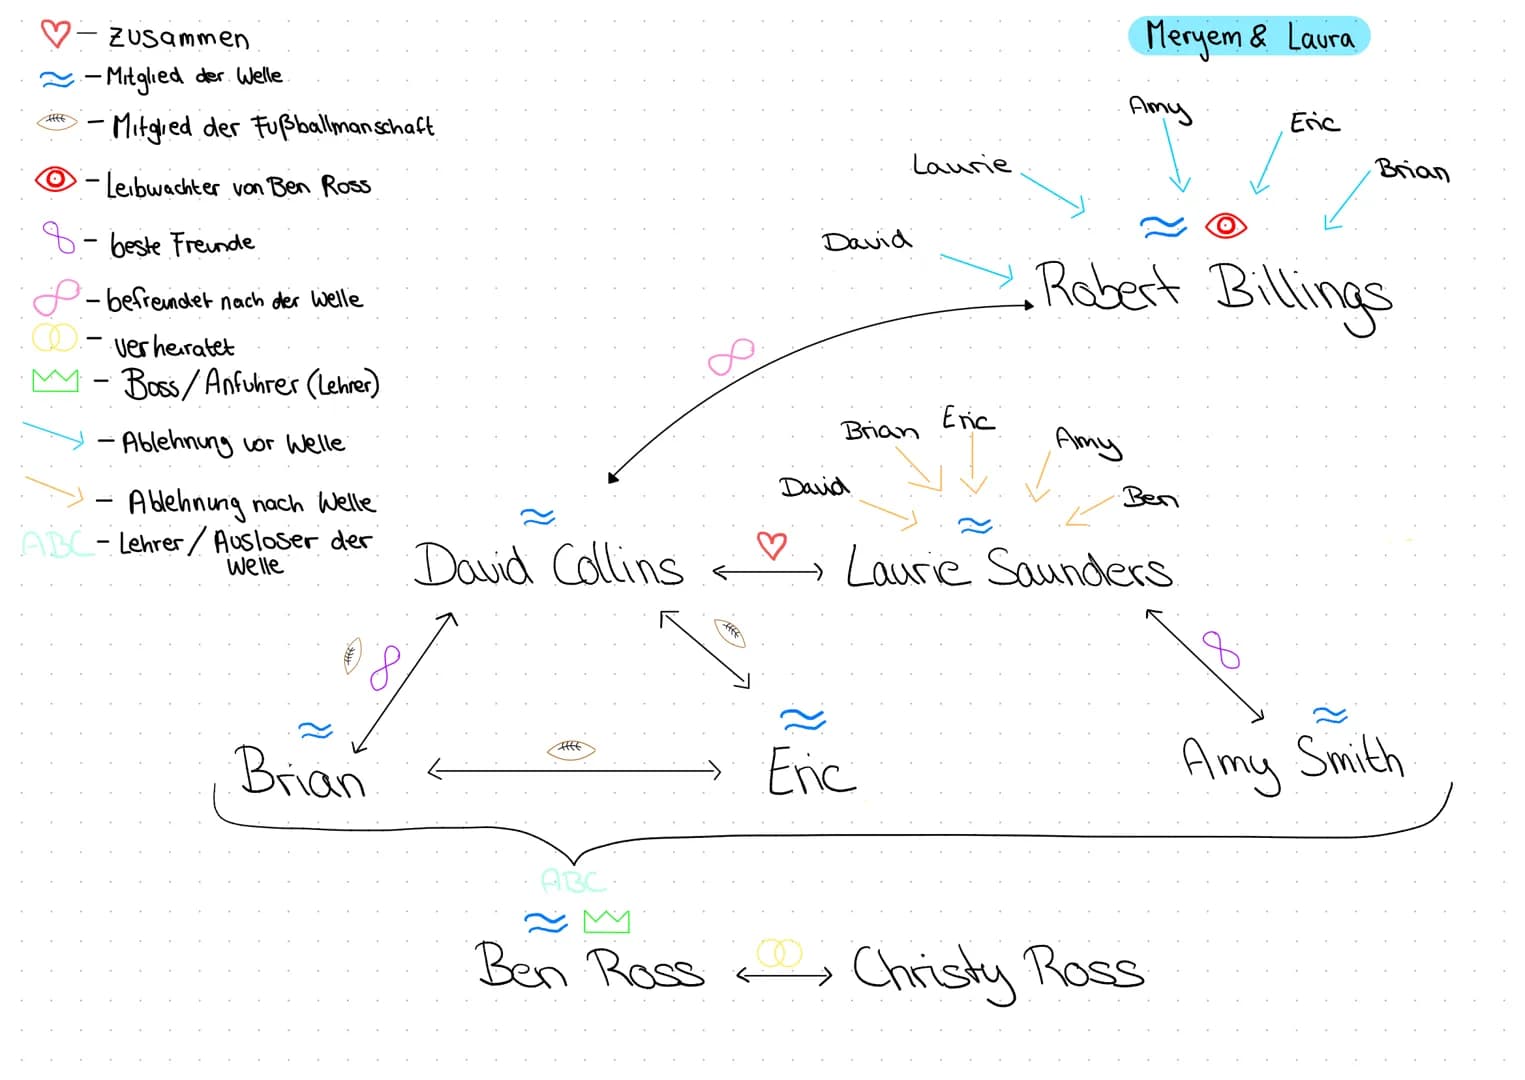 Meryem & Laura
– zusammen
– Mitglied der Welle
– Mitglied der Fußballmanschaft
– Leibwachter von Ben Ross
– beste Freunde
– befreundet nach der Welle
– verheiratet
– Boss/Anfuhrer (Lehrer)
– Ablehnung vor Welle
– Ablehnung nach Welle
ABC – Lehrer/Ausloser der
Welle
Amy
Eric
Laurie
Brian
David
Robert Billings
Brian
Eric
Amy
David
Ben
David Collins
Laurie Saunders
Brian
Eric
Amy Smith
ABC
Ben Ross
Christy Ross